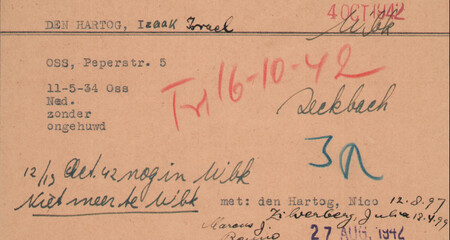 4 OCT 1942
DEN HARTOG, Izaak Israel
Wbk
OSS, Peperstr. 5
Trs 16-10-42
11-5-34 Oss
Ned.
zonder
ongehuwd
Zeckbach
3
12/13 Oct. 42 nog in Wbk
Niet meer te Wbk
met: den Hartog, Nico 12.8.97
Zilverberg, Julia 12.4.99
Marcus J.
27 AUG. 1942